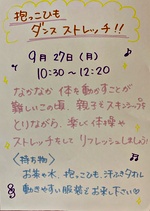 抱っこひも
ダンス ストレッチ!!
9月27日(月)
10:30~12:20
なかなか 体を動かすことが
難しいこの頃、親子でスキンシップを
とりながら、楽しく体操や
ストレッチをして リフレッシュしましょう!
<持ち物>
お茶か水、抱っこひも、汗ふきタオル
動きやすい服装でお来し下さい♡